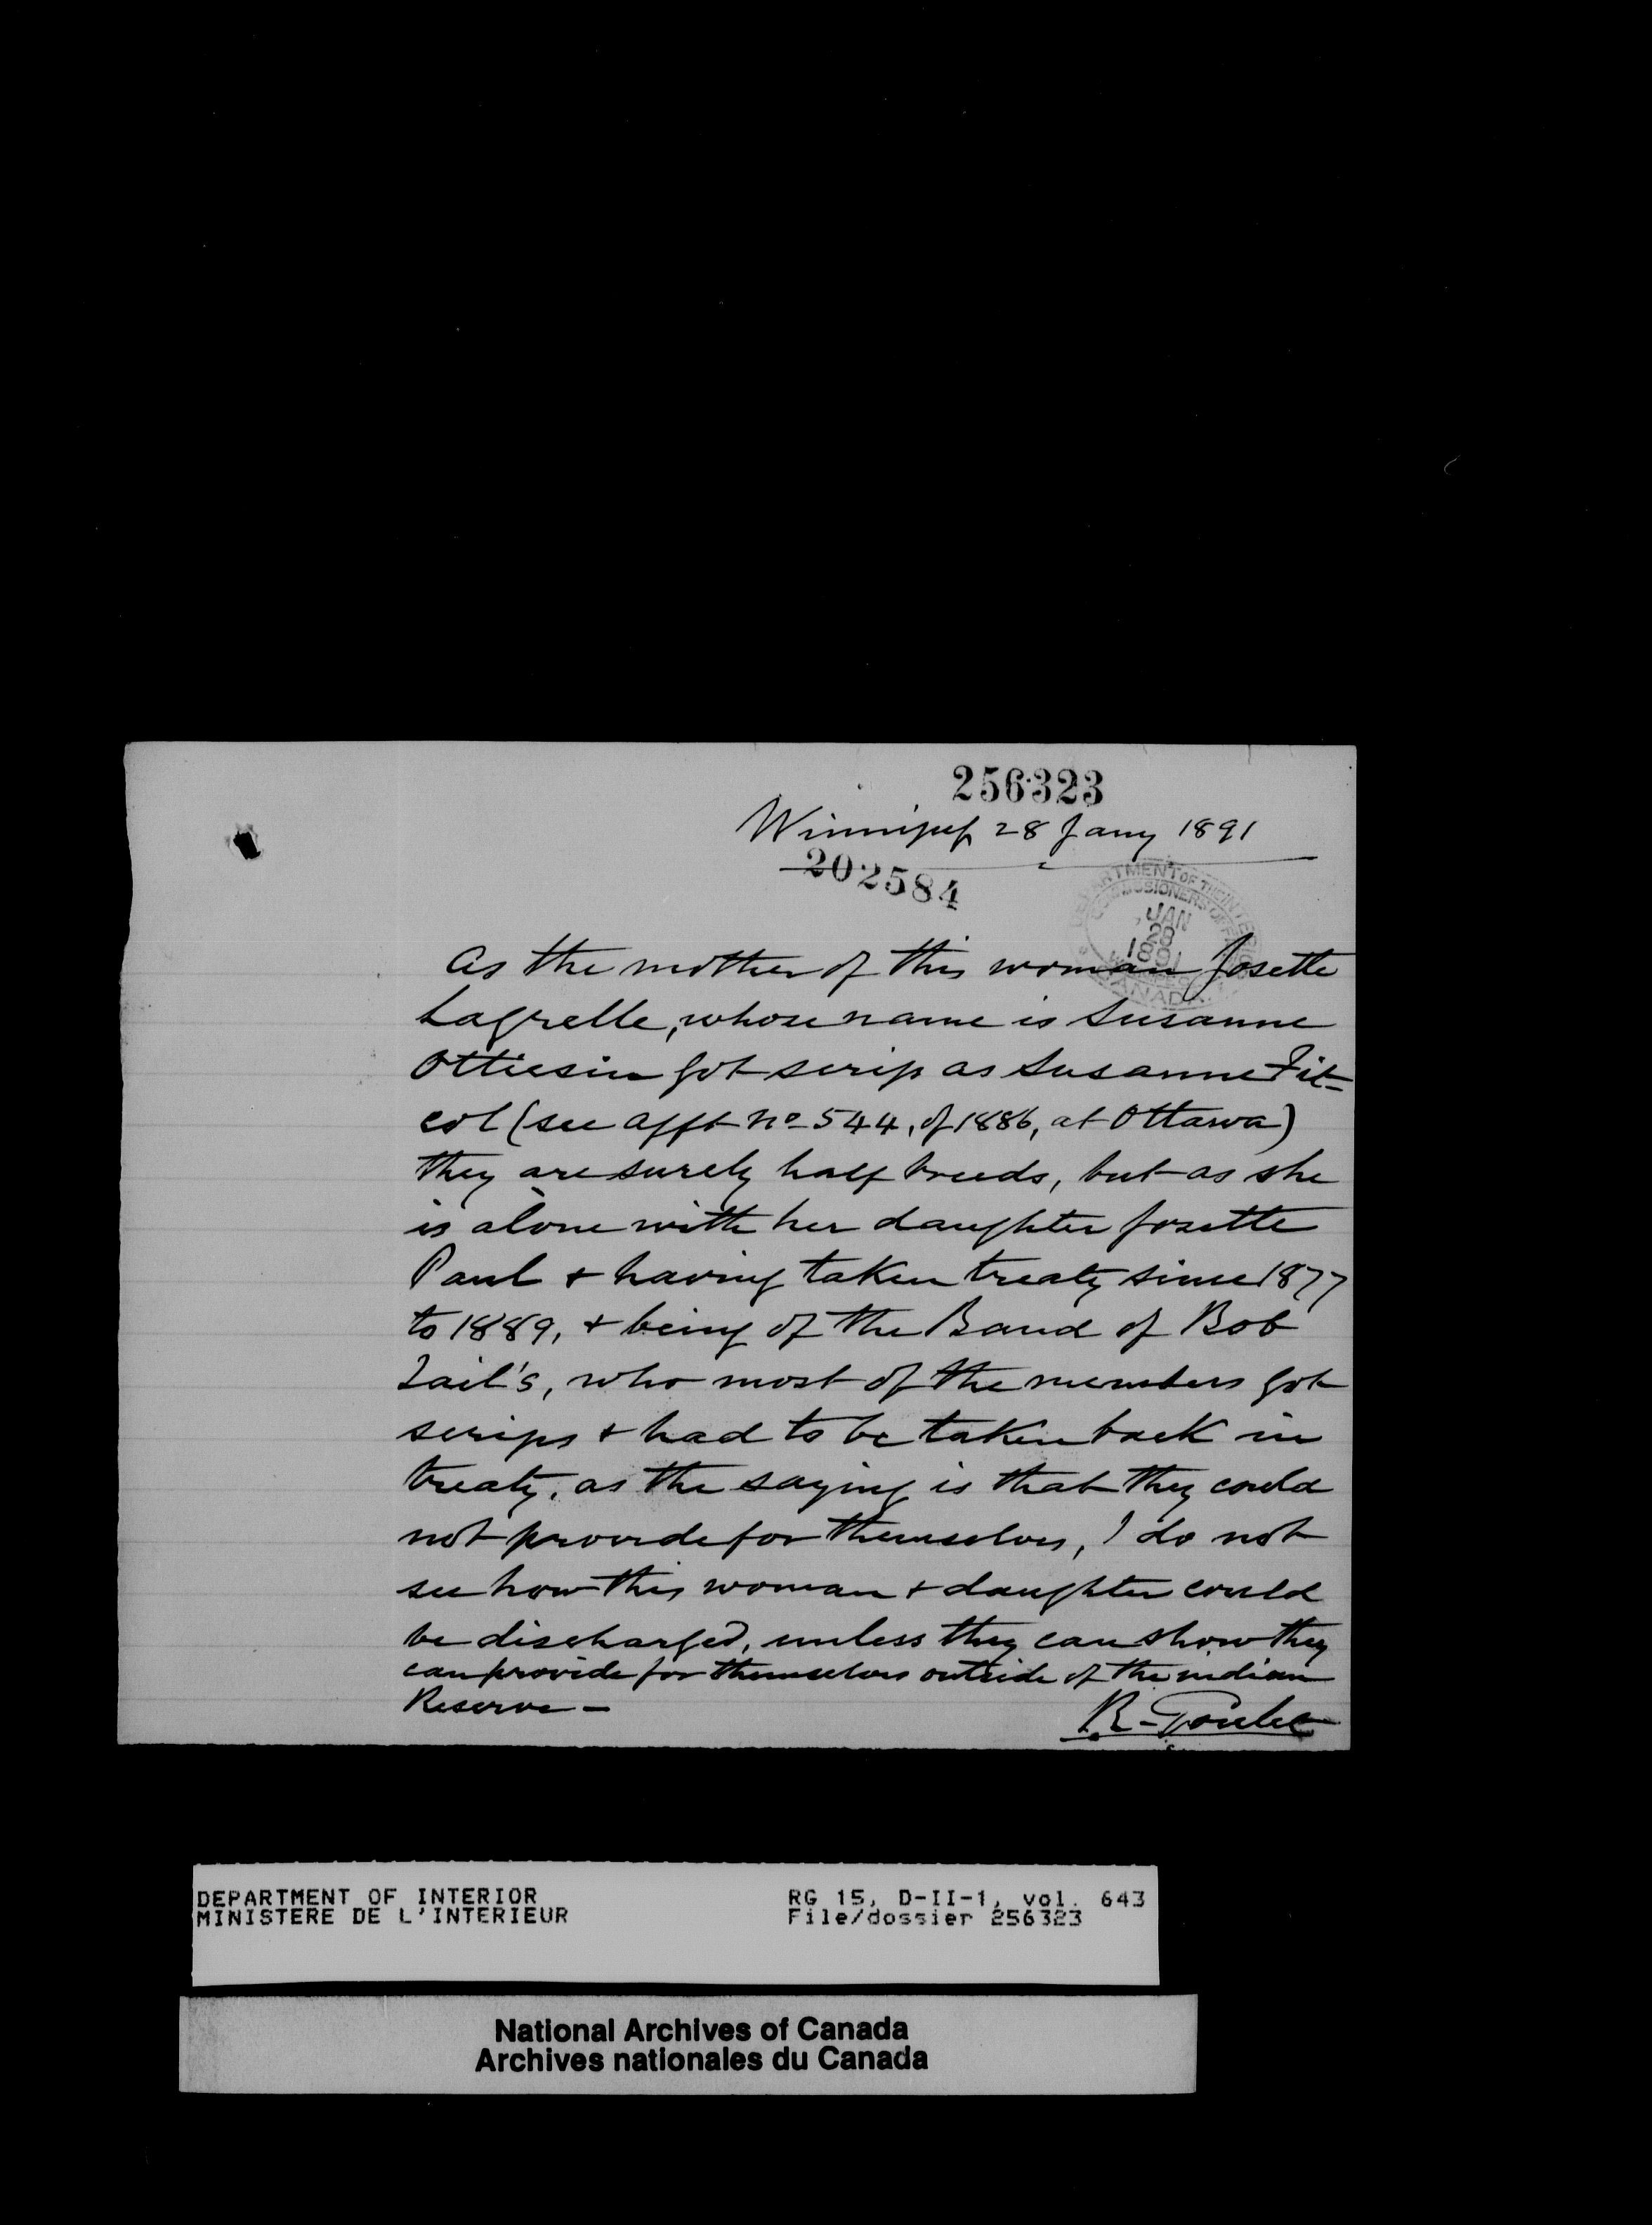 256323
Winnipeg 28 Jany 1891
202584
DEPARTMENT OF THE INTERIOR
COMMISSIONERS OFFICE
JAN
28
1891
CANADA
As the mother of this woman Josette
Lagrelle, whose name is Susanne
Ottiesin got scrip as Susanne
col (see afft no 544, of 1886, at Ottawa)
they are surely half breeds, but as she
is alone with her daughter Josette
Paul & having taken treaty since 1877
to 1889, & being of the Band of Bob
Tail's, who most of the members got
scrips & had to be taken back in
treaty, as the saying is that they could
not provide for themselves, I do not
see how this woman & daughter could
be discharged, unless they can show they
can provide for themselves outside of the indian
Reserve -
R. Goulet
DEPARTMENT OF INTERIOR RG 15, D-II-1, vol. 643
MINISTERE DE L'INTERIEUR File/dossier 256323
National Archives of Canada
Archives nationales du Canada